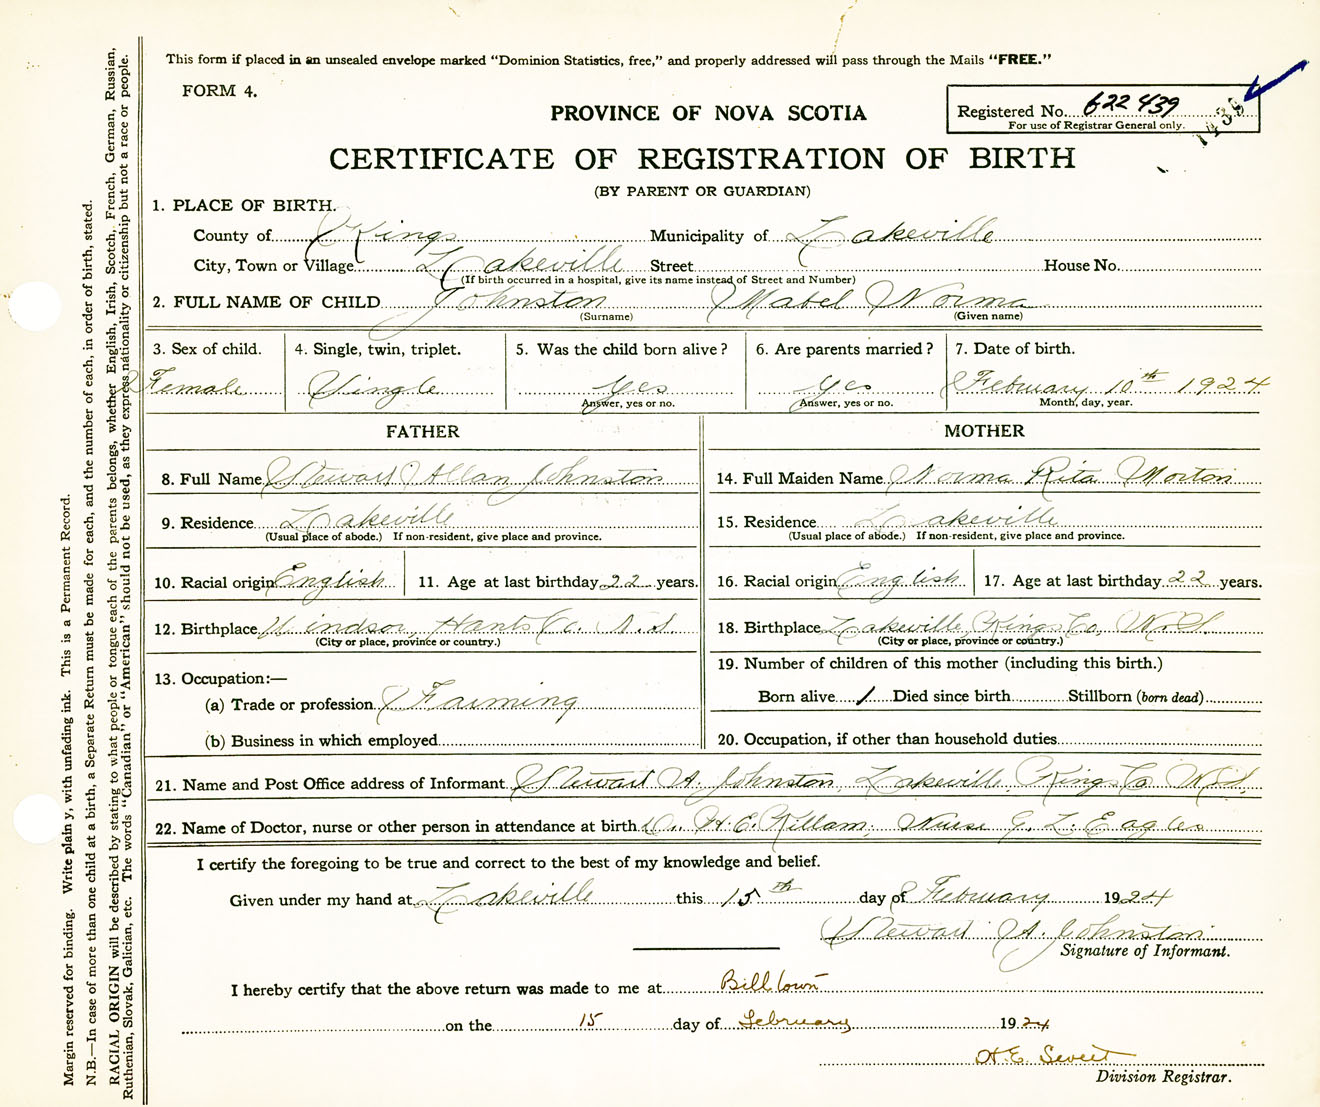 This form if placed in an unsealed envelope marked “Dominion Statistics, free,” and properly addressed will pass through the Mails “FREE.”
FORM 4.
PROVINCE OF NOVA SCOTIA
Registered No. 622439
For use of Registrar General only.
1439
CERTIFICATE OF REGISTRATION OF BIRTH
(BY PARENT OR GUARDIAN)
1. PLACE OF BIRTH.
County of Kings Municipality of Lakeville
City, Town or Village Lakeville Street House No.
(If birth occurred in a hospital, give its name instead of Street and Number)
2. FULL NAME OF CHILD Johnston Mabel Norma
(Surname) (Given name)
3. Sex of child. 4. Single, twin, triplet. 5. Was the child born alive? 6. Are parents married? 7. Date of birth.
Female Single Yes Yes February 10th 1924
Answer, yes or no. Answer, yes or no. Month, day, year.
FATHER MOTHER
8. Full Name Stewart Allan Johnston 14. Full Maiden Name Norma Rita Morton
9. Residence Lakeville 15. Residence Lakeville
(Usual place of abode.) If non-resident, give place and province. (Usual place of abode.) If non-resident, give place and province.
10. Racial origin English 11. Age at last birthday 22 years. 16. Racial origin English 17. Age at last birthday 22 years.
12. Birthplace Windsor, Hants Co. N.S. 18. Birthplace Lakeville, Kings Co, N.S.
(City or place, province or country.) (City or place, province or country.)
13. Occupation:— 19. Number of children of this mother (including this birth.)
(a) Trade or profession Farming Born alive 1 Died since birth Stillborn (born dead)
(b) Business in which employed 20. Occupation, if other than household duties
21. Name and Post Office address of Informant Stewart A. Johnston, Lakeville, Kings Co N.S.
22. Name of Doctor, nurse or other person in attendance at birth Dr. H. E. Killam; Nurse G. L. Eagles
I certify the foregoing to be true and correct to the best of my knowledge and belief.
Given under my hand at Lakeville this 15th day of February 1924
Stewart A. Johnston
Signature of Informant.
I hereby certify that the above return was made to me at Billtown
on the 15 day of February 1924
H. E.
Division Registrar.
Margin reserved for binding. Write plainly, with unfading ink. This is a Permanent Record.
N.B.—In case of more than one child at a birth, a Separate Return must be made for each, and the number of each, in order of birth, stated.
RACIAL ORIGIN will be described by stating to what people or tongue each of the parents belongs, whether English, Irish, Scotch, French, German, Russian,
Ruthenian, Slovak, Galician, etc. The words “Canadian” or “American” should not be used, as they express nationality or citizenship but not a race or people.